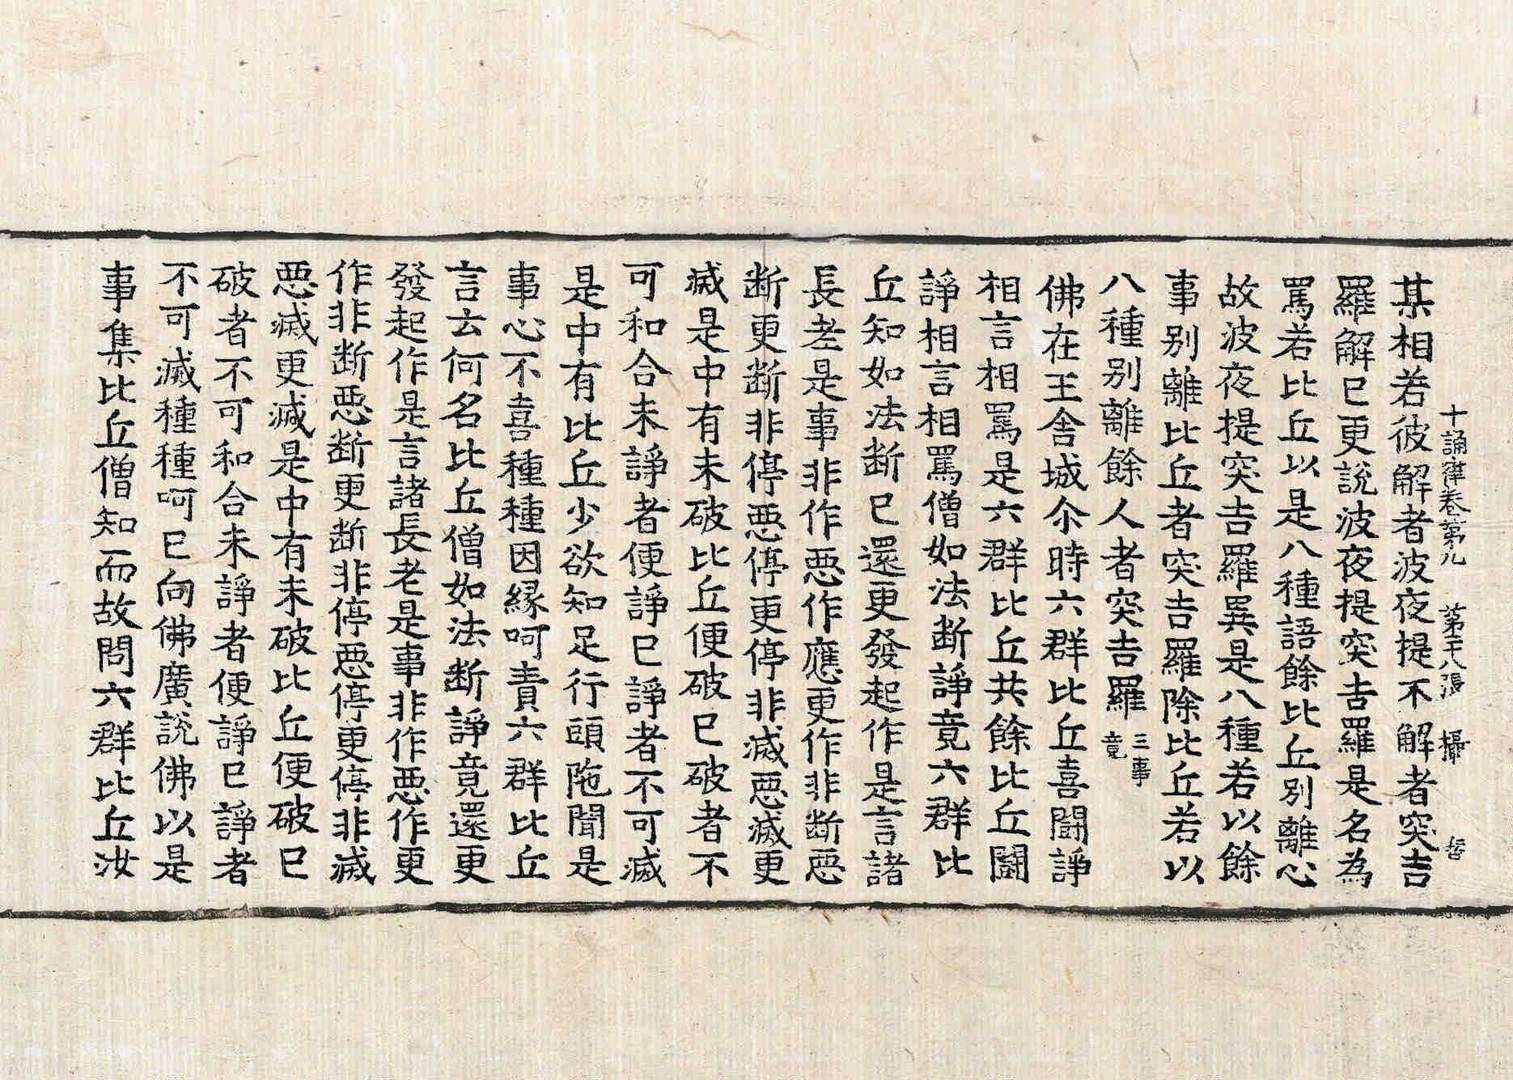 十誦律卷第九　第二十八張　攝
某相若彼解者波夜提不解者突吉
羅解已更說波夜提突吉羅是名為
罵若比丘以是八種語餘比丘別離心
故波夜提突吉羅異是八種若以餘
事別離比丘者突吉羅除比丘若以
八種別離餘人者突吉羅三事竟
佛在王舍城尒時六群比丘喜鬪諍
相言相罵是六群比丘共餘比丘鬪
諍相言相罵僧如法斷諍竟六群比
丘知如法斷已還更發起作是言諸
長老是事非作惡作應更作非斷惡
斷更斷非停惡停更停非滅惡滅更
滅是中有未破比丘便破已破者不
可和合未諍者便諍已諍者不可滅
是中有比丘少欲知足行頭陁聞是
事心不喜種種因緣呵責六群比丘
言云何名比丘僧如法斷諍竟還更
發起作是言諸長老是事非作惡作更
作非斷惡斷更斷非停惡停更停非滅
惡滅更滅是中有未破比丘便破已
破者不可和合未諍者便諍已諍者
不可滅種種呵已向佛廣說佛以是
事集比丘僧知而故問六群比丘汝